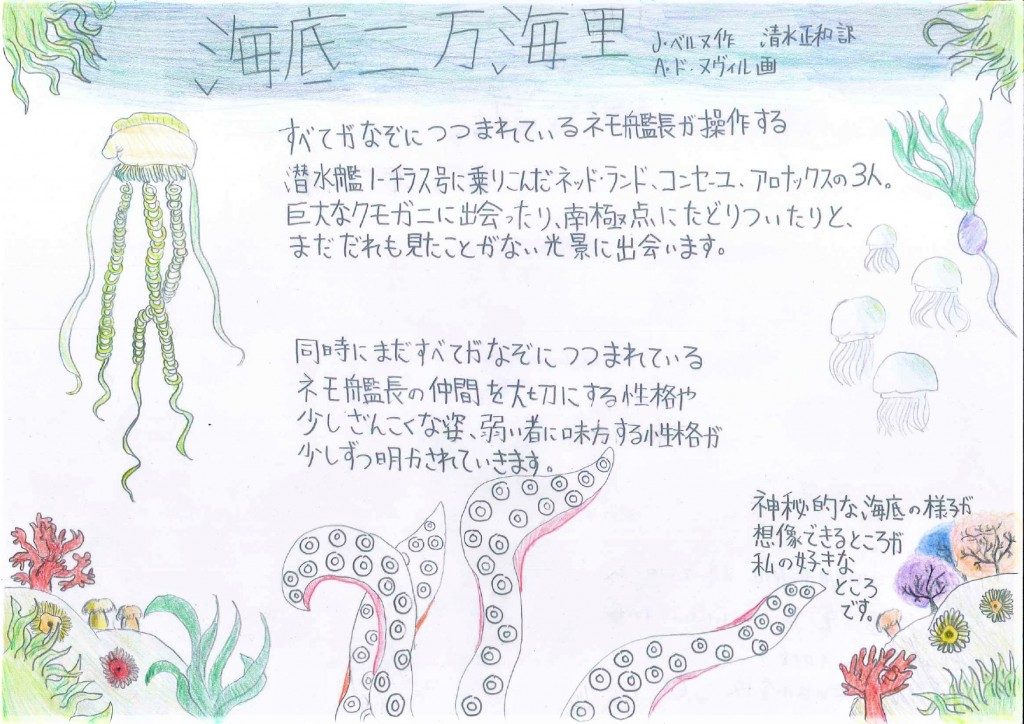 海底二万海里
J・ベルヌ作 清水正和訳
A・ド・ヌヴィル画
すべてがなぞにつつまれているネモ艦長が操作する
潜水艦ノーチラス号に乗りこんだネッド・ランド、コンセーユ、アロナックスの3人。
巨大なクモガニに出会ったり、南極点にたどりついたりと、
まだだれも見たことがない光景に出会います。
同時にまだすべてがなぞにつつまれている
ネモ艦長の仲間を大切にする性格や
少しざんこくな姿、弱い者に味方する性格が
少しずつ明かされていきます。
神秘的な海底の様子が
想像できるところが
私の好きな
ところ
です。